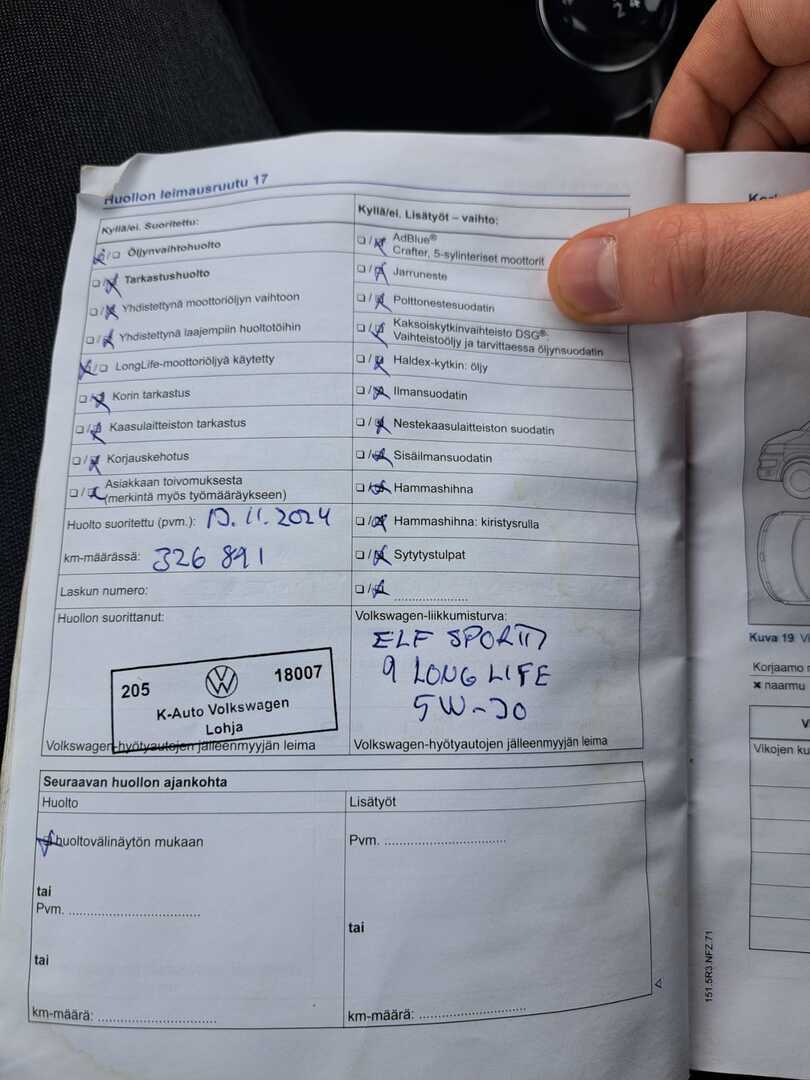 Huollon leimausruutu 17
Kyllä/ei. Suoritettu:
☑/☐ Öljynvaihtohuolto
☐/☒ Tarkastushuolto
☐/☒ Yhdistettynä moottoriöljyn vaihtoon
☐/☒ Yhdistettynä laajempiin huoltotöihin
☑/☐ LongLife-moottoriöljyä käytetty
☐/☒ Korin tarkastus
☐/☒ Kaasulaitteiston tarkastus
☐/☒ Korjauskehotus
☐/☒ Asiakkaan toivomuksesta
(merkintä myös työmääräykseen)
Huolto suoritettu (pvm.): 13.11.2024
km-määrässä: 326 891
Laskun numero:
Huollon suorittanut:
205 18007
K-Auto Volkswagen
Lohja
Volkswagen-hyötyautojen jälleenmyyjän leima
Kyllä/ei. Lisätyöt – vaihto:
☐/☒ AdBlue®
Crafter, 5-sylinteriset moottorit
☐/☒ Jarruneste
☐/☒ Polttonestesuodatin
☐/☒ Kaksoiskytkinvaihteisto DSG®:
Vaihteistoöljy ja tarvittaessa öljynsuodatin
☐/☒ Haldex-kytkin: öljy
☐/☒ Ilmansuodatin
☐/☒ Nestekaasulaitteiston suodatin
☐/☒ Sisäilmansuodatin
☐/☒ Hammashihna
☐/☒ Hammashihna: kiristysrulla
☐/☒ Sytytystulpat
☐/☒ ....................
Volkswagen-liikkumisturva:
ELF SPORTI
9 LONG LIFE
5W-30
Volkswagen-hyötyautojen jälleenmyyjän leima
Seuraavan huollon ajankohta
Huolto
☑ huoltovälinäytön mukaan
tai
Pvm. ....................
tai
km-määrä: ....................
Lisätyöt
Pvm. ....................
tai
km-määrä: ....................
151.5R3.NFZ.71
Kuva 19
Korjaamo
✖ naarmu
V
Vikojen